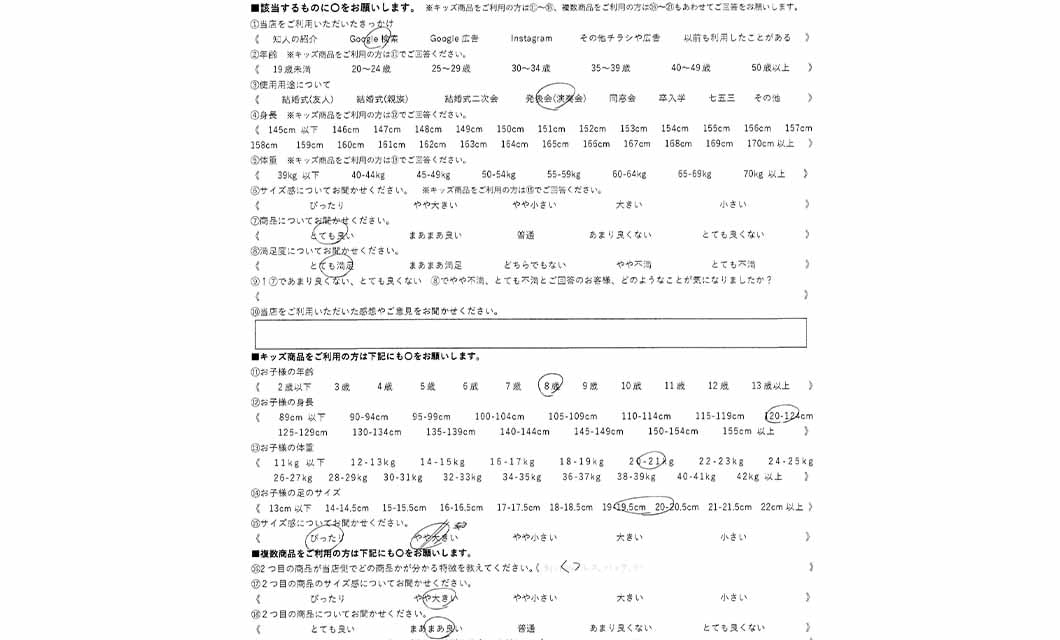 ■該当するものに〇をお願いします。 ※キッズ商品をご利用の方は⑪～⑮、複数商品をご利用の方は⑯～㉑もあわせてご回答をお願いします。
①当店をご利用いただいたきっかけ
《 知人の紹介 Google 検索 Google 広告 Instagram その他チラシや広告 以前も利用したことがある 》
②年齢 ※キッズ商品をご利用の方は⑪でご回答ください。
《 19歳未満 20～24歳 25～29歳 30～34歳 35～39歳 40～49歳 50歳以上 》
③使用用途について
《 結婚式(友人) 結婚式(親族) 結婚式二次会 発表会(演奏会) 同窓会 卒入学 七五三 その他 》
④身長 ※キッズ商品をご利用の方は⑫でご回答ください。
《 145cm 以下 146cm 147cm 148cm 149cm 150cm 151cm 152cm 153cm 154cm 155cm 156cm 157cm
158cm 159cm 160cm 161cm 162cm 163cm 164cm 165cm 166cm 167cm 168cm 169cm 170cm 以上 》
⑤体重 ※キッズ商品をご利用の方は⑬でご回答ください。
《 39kg 以下 40-44kg 45-49kg 50-54kg 55-59kg 60-64kg 65-69kg 70kg 以上 》
⑥サイズ感についてお聞かせください。 ※キッズ商品をご利用の方は⑮でご回答ください。
《 ぴったり やや大きい やや小さい 大きい 小さい 》
⑦商品についてお聞かせください。
《 とても良い まあまあ良い 普通 あまり良くない とても良くない 》
⑧満足度についてお聞かせください。
《 とても満足 まあまあ満足 どちらでもない やや不満 とても不満 》
⑨↑⑦であまり良くない、とても良くない ⑧でやや不満、とても不満とご回答のお客様、どのようなことが気になりましたか？
《 》
⑩当店をご利用いただいた感想やご意見をお聞かせください。
■キッズ商品をご利用の方は下記にも〇をお願いします。
⑪お子様の年齢
《 2歳以下 3歳 4歳 5歳 6歳 7歳 8歳 9歳 10歳 11歳 12歳 13歳以上 》
⑫お子様の身長
《 89cm 以下 90-94cm 95-99cm 100-104cm 105-109cm 110-114cm 115-119cm 120-124cm
125-129cm 130-134cm 135-139cm 140-144cm 145-149cm 150-154cm 155cm 以上 》
⑬お子様の体重
《 11kg 以下 12-13kg 14-15kg 16-17kg 18-19kg 20-21kg 22-23kg 24-25kg
26-27kg 28-29kg 30-31kg 32-33kg 34-35kg 36-37kg 38-39kg 40-41kg 42kg 以上 》
⑭お子様の足のサイズ
《 13cm 以下 14-14.5cm 15-15.5cm 16-16.5cm 17-17.5cm 18-18.5cm 19-19.5cm 20-20.5cm 21-21.5cm 22cm 以上 》
⑮サイズ感についてお聞かせください。
《 ぴったり やや大きい やや小さい 大きい 小さい 》
■複数商品をご利用の方は下記にも〇をお願いします。
⑯2つ目の商品が当店側でどの商品かが分かる特徴を教えてください。《 くつ 》
⑰2つ目の商品のサイズ感についてお聞かせください。
《 ぴったり やや大きい やや小さい 大きい 小さい 》
⑱2つ目の商品についてお聞かせください。
《 とても良い まあまあ良い 普通 あまり良くない とても良くない 》